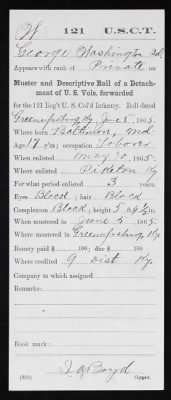 W 121 U.S.C.T.
George Washington
Appears with rank of Private on
Muster and Descriptive Roll of a Detach-
ment of U. S. Vols. forwarded
for the 121 Reg't U. S. Col'd Infantry. Roll dated
Greenupsburg Ky June 5, 1865.
Where born Baltimore, Md
Age 17 y'rs; occupation Laborer
When enlisted May 30, 1865.
Where enlisted Piketon Ky
For what period enlisted 3 years.
Eyes Black; hair Black
Complexion Black; height 5 ft. in.
When mustered in June 5, 1865.
Where mustered in Greenupsburg, Ky
Bounty paid $ 100; due $ 100
Where credited 9 Dist Ky.
Company to which assigned
Remarks:
Book mark:
J. A. Boyd
Copyist.